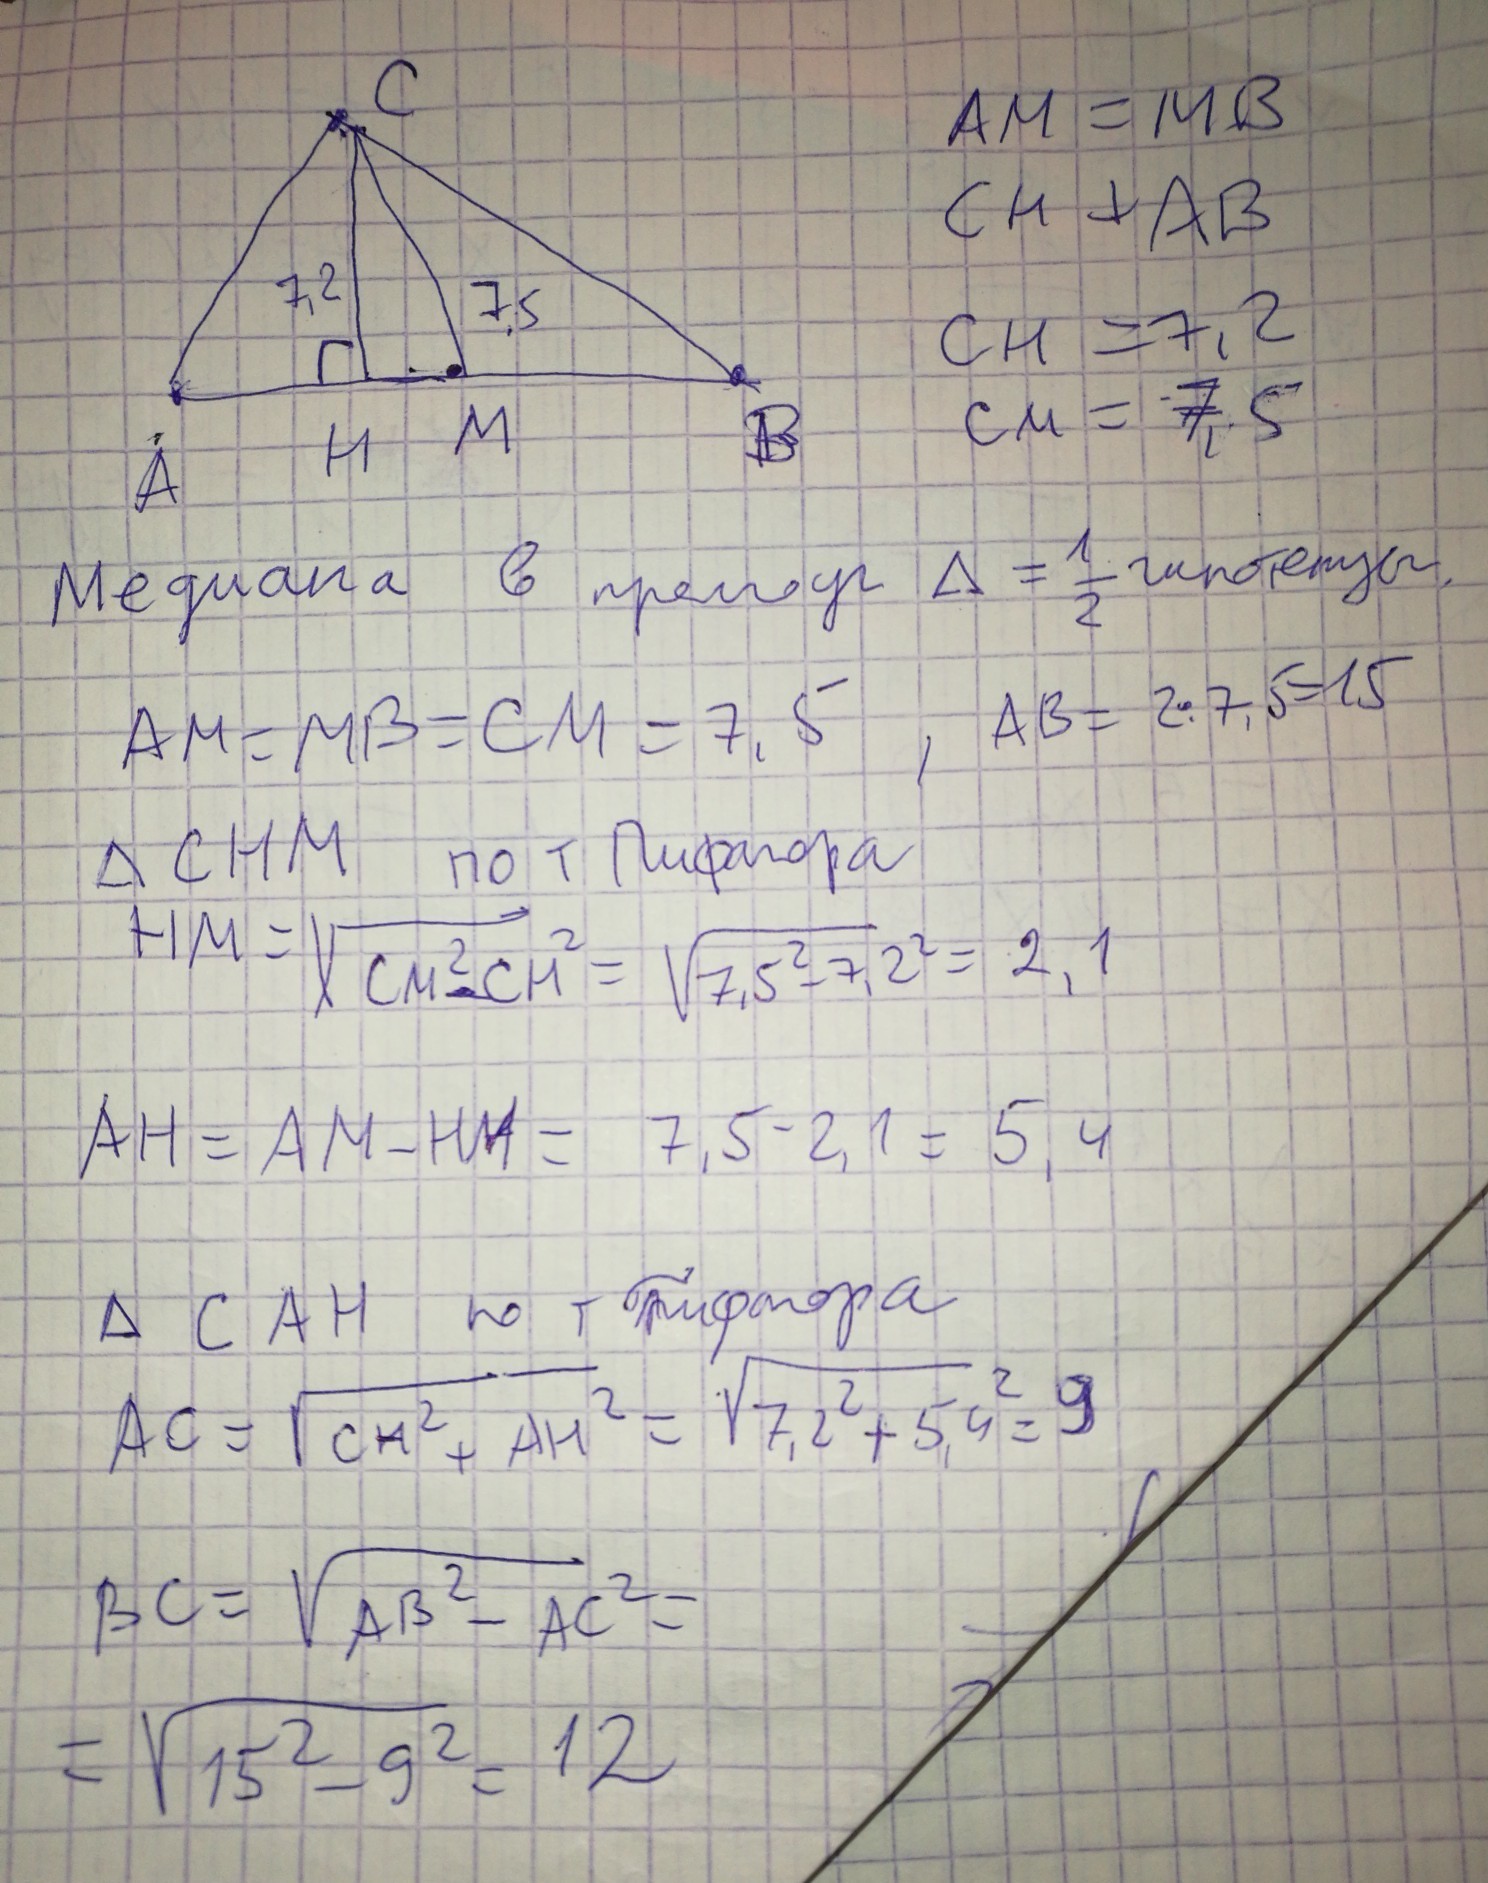 C
7,2
7,5
A
H
M
B
AM = MB
CH ⊥ AB
CH = 7,2
CM = 7,5
Медиана в прямоуг Δ = 1/2 гипотенузы.
AM = MB = CM = 7,5 , AB = 2·7,5=15
Δ CHM по т Пифагора
HM = √CM²-CH² = √7,5²-7,2² = 2,1
AH = AM-HM = 7,5-2,1 = 5,4
Δ CAH по т Пифагора
AC = √CH²+AH² = √7,2²+5,4² = 9
BC = √AB²-AC² =
= √15²-9² = 12